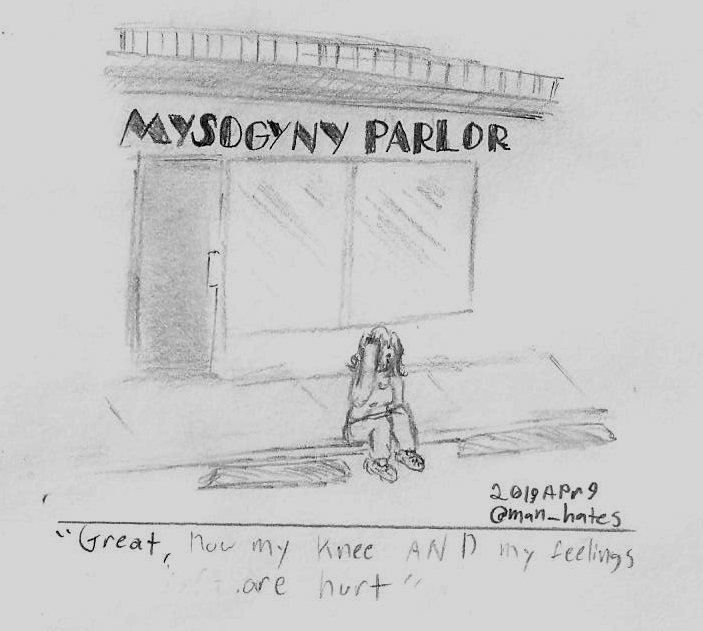 MYSOGYNY PARLOR
2019APr9
@man_hates
"Great, now my knee AND my feelings
are hurt"